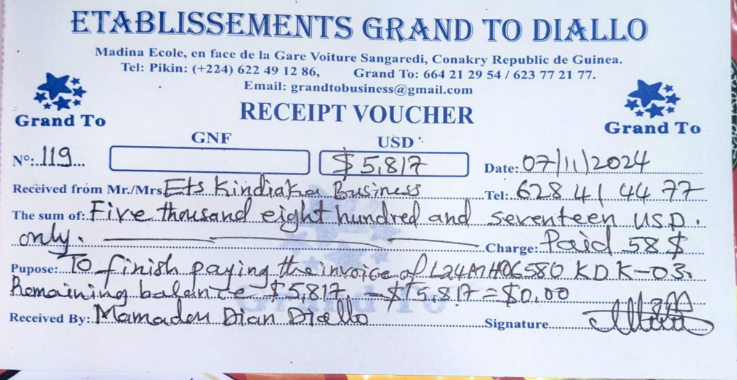 ETABLISSEMENTS GRAND TO DIALLO
Madina Ecole, en face de la Gare Voiture Sangaredi, Conakry Republic de Guinea.
Tel: Pikin: (+224) 622 49 12 86, Grand To: 664 21 29 54 / 623 77 21 77.
Email: grandtobusiness@gmail.com
Grand To RECEIPT VOUCHER Grand To
GNF USD
N°: 119 $5,817 Date: 07/11/2024
Received from Mr./Mrs Ets Kindiaka Business Tel: 628 41 44 77
The sum of: Five thousand eight hundred and seventeen USD.
only. Charge: Paid 58$
Pupose: To finish paying the invoice of KDK-03.
Remaining balance $5,817 - $5,817 = $0.00
Received By: Mamadou Dian Diallo Signature